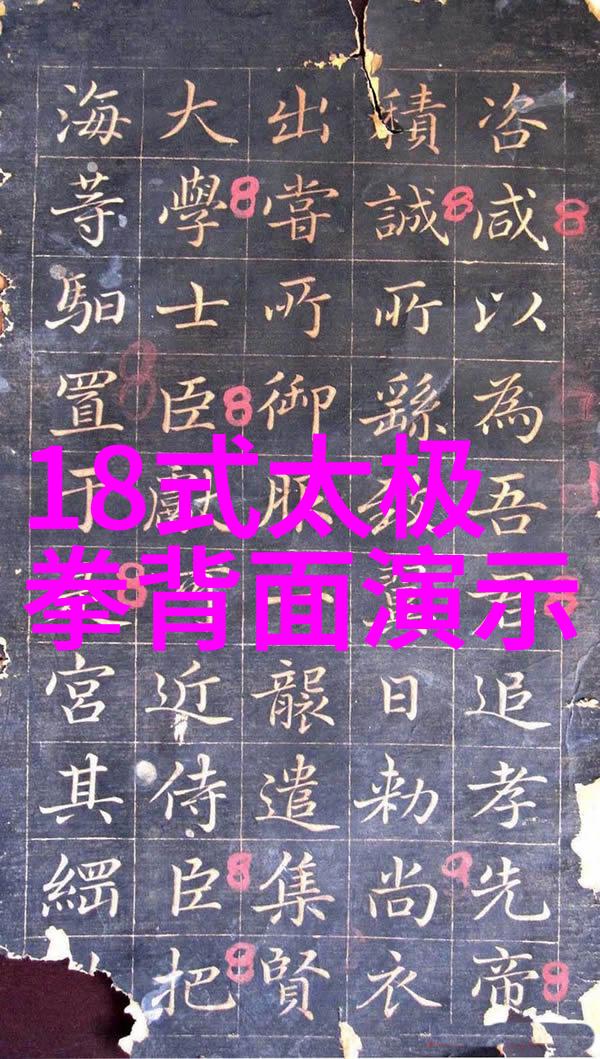 咨咸以為吾追孝先帝
積誠所繇日勅尚衣
出嘗所御服襲遣集賢
大學士臣獻近侍臣把
海䓁馹置于宮其綱
18式太极
拳背面演示